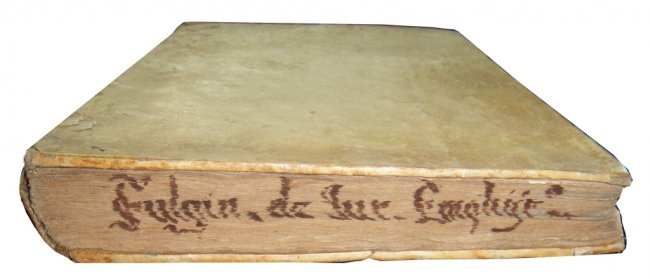 Fulgin. de Iur. Emphÿt.